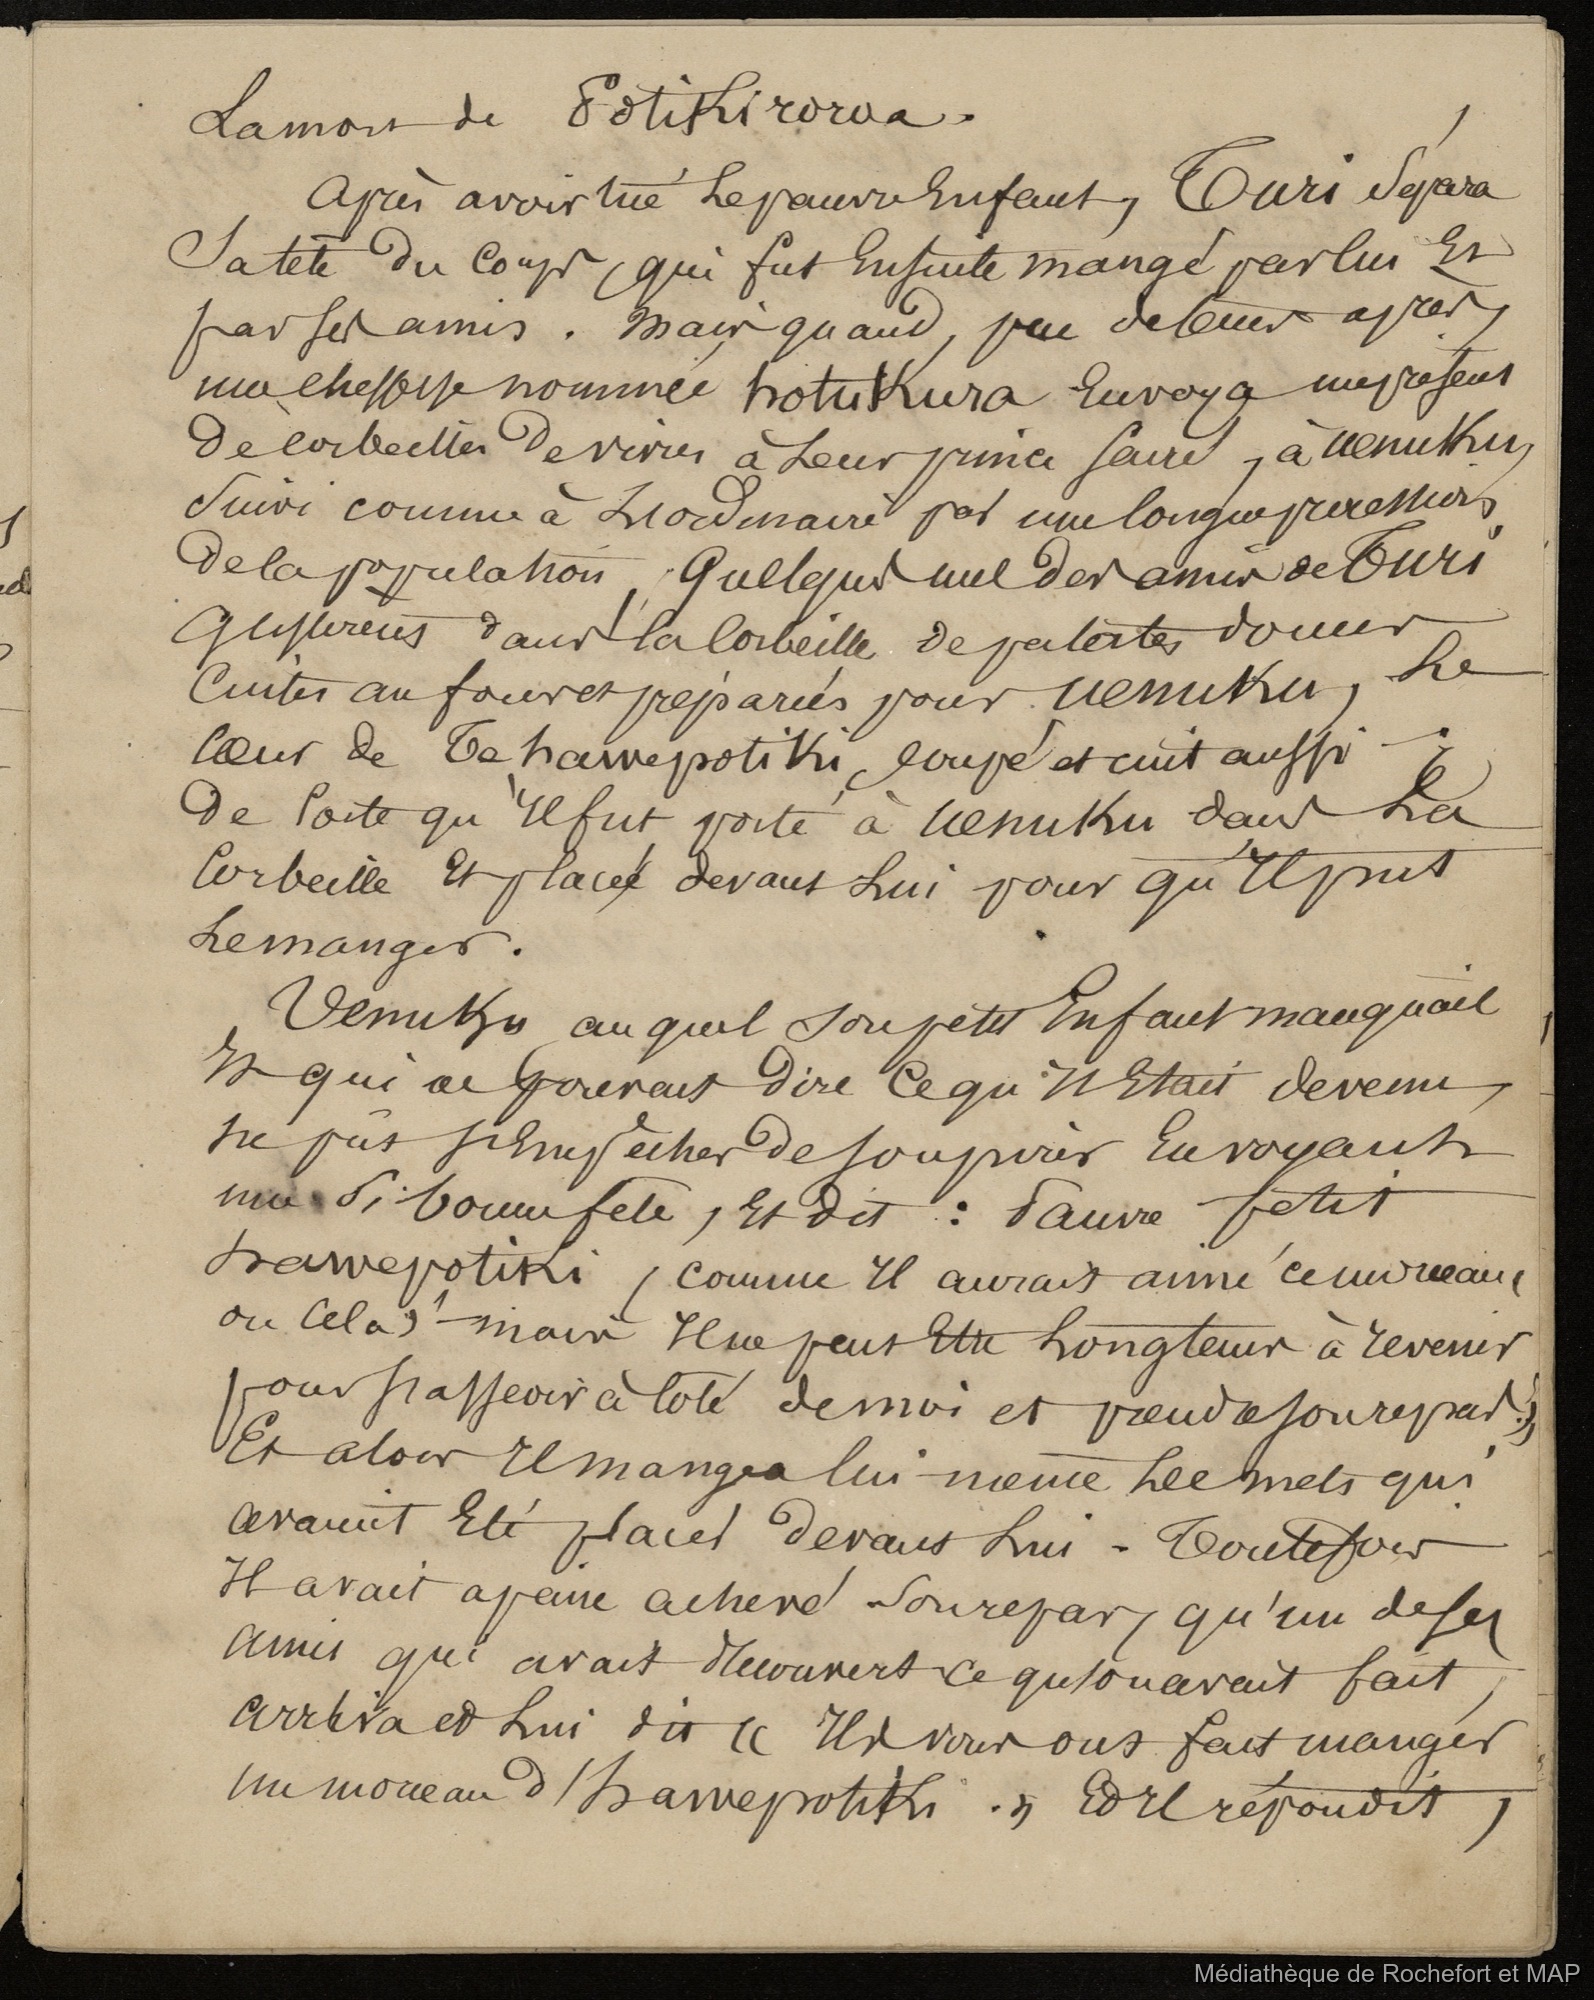 La mort de Potikiroroa.
Après avoir tué le pauvre Enfant, Turi sépara
Sa tête du Corps, qui fut Ensuite mangé par lui Et
par ses amis. Mais quand, peu de tems après,
une cheffesse nommée hotukura Envoya un présent
De corbeilles De vivres à Leur prince sacré, à Uenuku,
Suivi comme à L'ordinaire par une longue procession
De la population, Quelques uns Des amis de Turi
Glissèrent dans la Corbeille de patates douces
Cuites au four et préparées pour Uenuku, Le
Cœur de Te hawepotiki, coupé et cuit aussi ;
De sorte qu'Il fut porté à Uenuku dans La
Corbeille Et placé devant Lui pour qu'Il put
Le manger.
Uenuku auquel son petit Enfant manquait
Et qui ne pouvait Dire Ce qu'Il Etait devenu,
ne pût s'Empêcher De soupirer En voyant
une Si bonne fete, Et Dit : Pauvre petit
hawepotiki, comme Il aurait aimé ce morceau,
ou Cela, mais Il ne peut Etre Longtems à revenir
pour s'asseoir à Coté de moi et prendre son repas. »
Et alors Il mangea lui-meme Les mets qui
avaient Eté placés Devant Lui - Toutefois
Il avait a peine achevé Son repas, qu'un de ses
Amis qui avait decouvert ce qu'on avait fait,
arriva et Lui dit « Ils vous ont fait manger
un morceau d'hawepotiki. » Et Il répondit,
Médiathèque de Rochefort et MAP